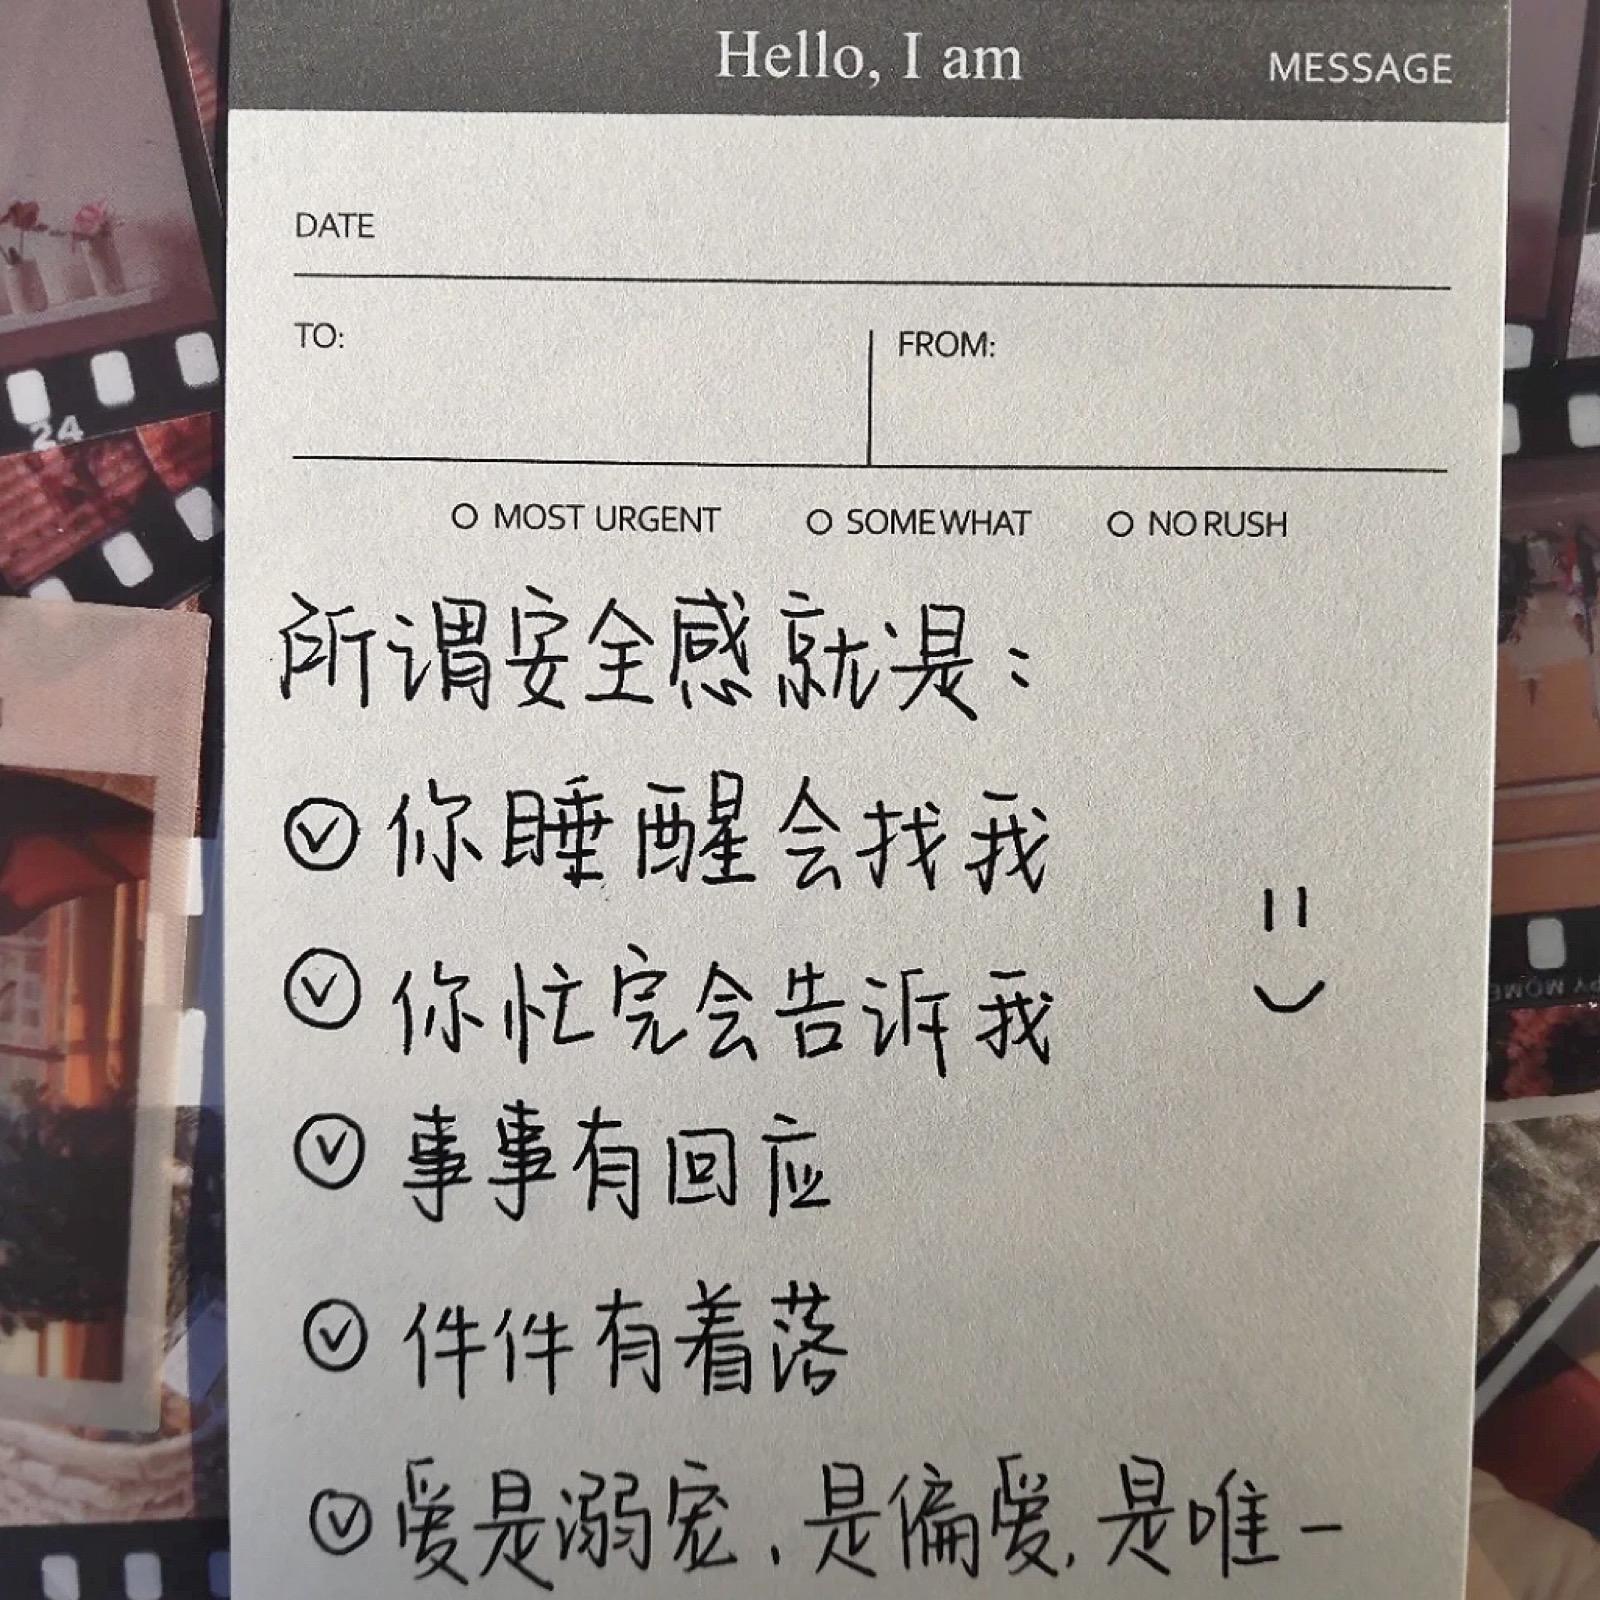 Hello, I am MESSAGE
DATE
TO: FROM:
○ MOST URGENT ○ SOMEWHAT ○ NO RUSH
所谓安全感就是：
你睡醒会找我
你忙完会告诉我
事事有回应
件件有着落
爱是溺宠，是偏爱，是唯一
24